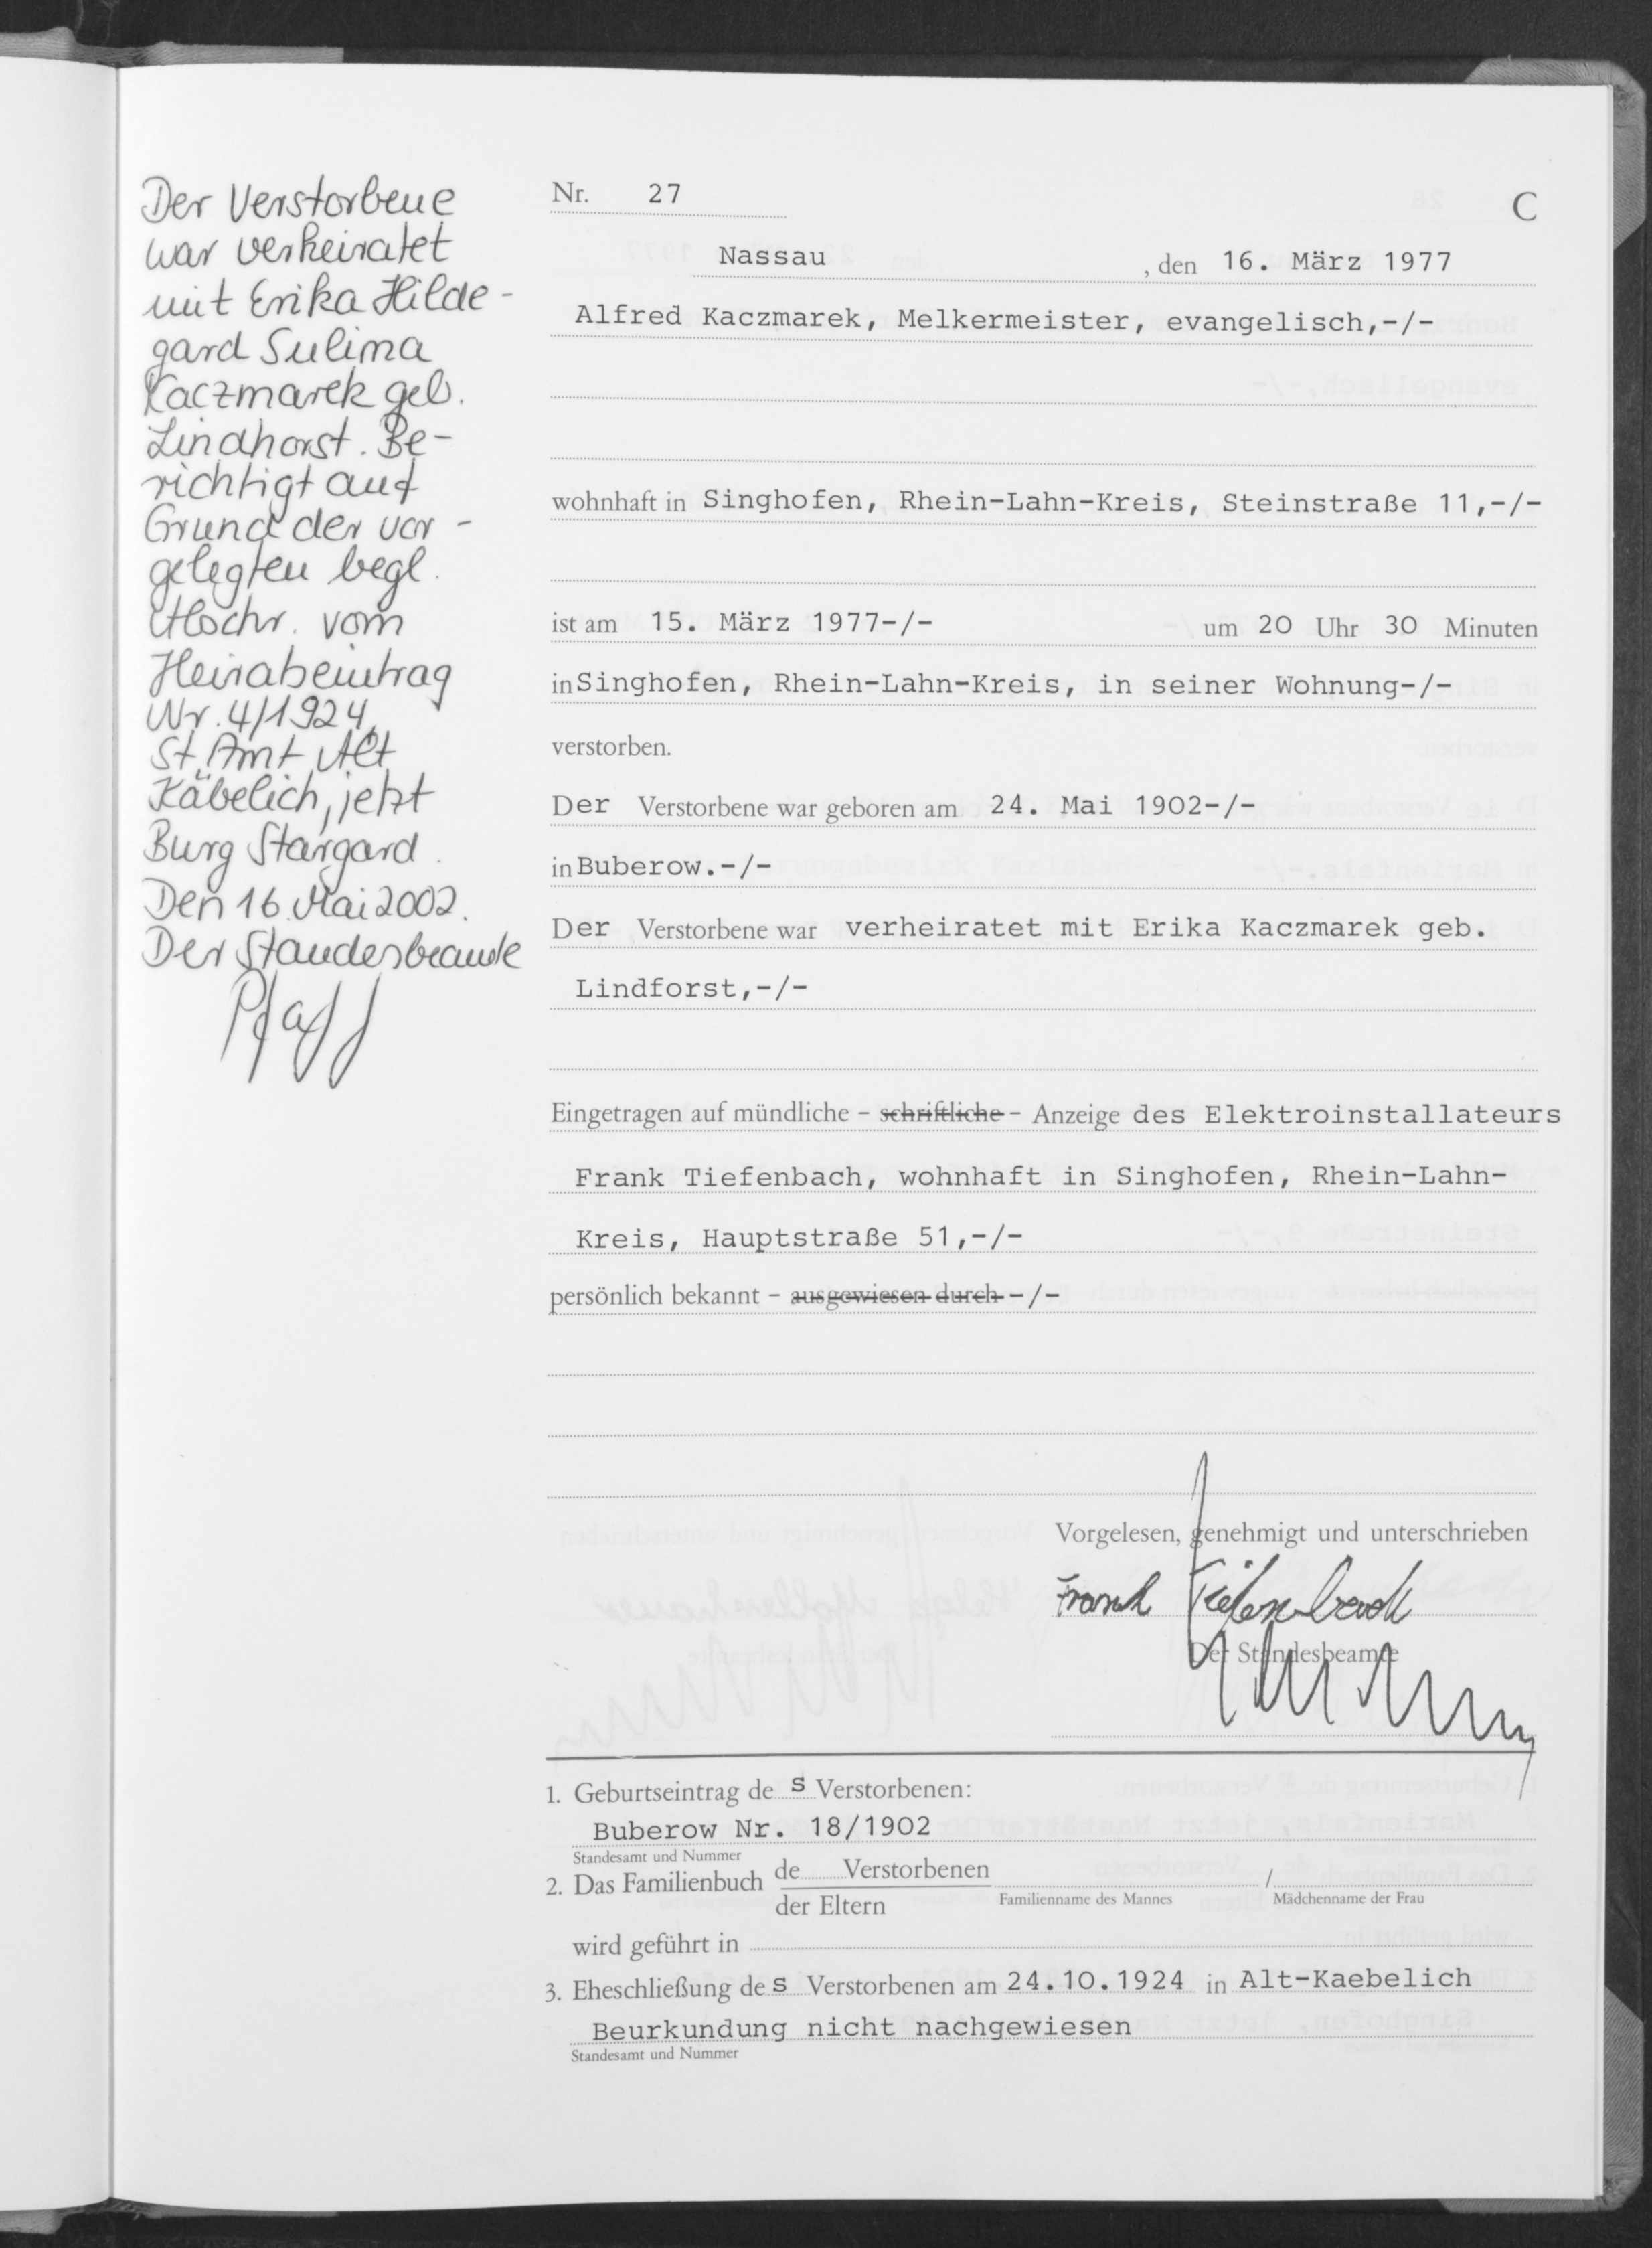 Der Verstorbene
war verheiratet
mit Erika Hilde-
gard Sulima
Kaczmarek geb.
Lindhorst. Be-
richtigt auf
Grund der vor-
gelegten begl.
Abschr. vom
Heirabeintrag
Nr. 4/1924,
St.Amt Alt
Käbelich, jetzt
Burg Stargard.
Den 16. Mai 2002.
Der Standesbeamte
Pfaff
Nr. 27
C
Nassau, den 16. März 1977
Alfred Kaczmarek, Melkermeister, evangelisch,-/-
wohnhaft in Singhofen, Rhein-Lahn-Kreis, Steinstraße 11,-/-
ist am 15. März 1977-/- um 20 Uhr 30 Minuten
in Singhofen, Rhein-Lahn-Kreis, in seiner Wohnung-/-
verstorben.
Der Verstorbene war geboren am 24. Mai 1902-/-
in Buberow.-/-
Der Verstorbene war verheiratet mit Erika Kaczmarek geb.
Lindforst,-/-
Eingetragen auf mündliche - schriftliche - Anzeige des Elektroinstallateurs
Frank Tiefenbach, wohnhaft in Singhofen, Rhein-Lahn-
Kreis, Hauptstraße 51,-/-
persönlich bekannt - ausgewiesen durch -/-
Vorgelesen, genehmigt und unterschrieben
Frank Tiefenbach
Der Standesbeamte
1. Geburtseintrag des Verstorbenen:
Buberow Nr. 18/1902
Standesamt und Nummer
2. Das Familienbuch de Verstorbenen /
der Eltern Familienname des Mannes Mädchenname der Frau
wird geführt in
3. Eheschließung des Verstorbenen am 24.10.1924 in Alt-Kaebelich
Beurkundung nicht nachgewiesen
Standesamt und Nummer